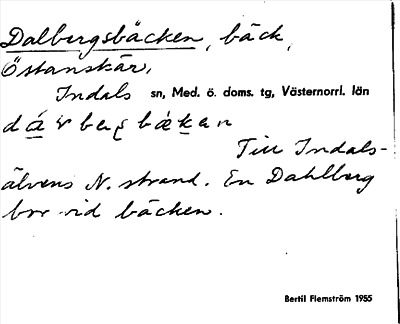 Dalbergsbäcken, bäck,
Östanskär,
Indals sn, Med. ö. doms. tg, Västernorrl. län
Till Indals-
älvens N. strand. En Dahlberg
bor vid bäcken.
Bertil Flemström 1955